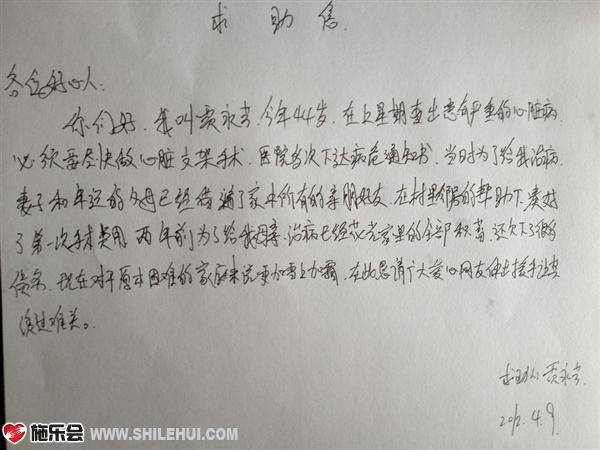 求助信
各位好心人:
你们好,我叫贾永芳,今年44岁,在上星期查出患有严重的心脏病,
必须要尽快做心脏支架手术,医院多次下达病危通知书,当时为了给我治病,
妻子和年迈的父母已经借遍了家中所有的亲朋好友,在村里邻居的帮助下凑好
了第一次手术费用,两年前为了给我母亲治病已经花光家里的全部积蓄,还欠下了很多
债务,现在对于原本困难的家庭来说更加雪上加霜,在此恳请广大爱心网友伸出援手让我
渡过难关。
求助人:贾永芳
2012.4.9
施乐会 WWW.SHILEHUI.COM